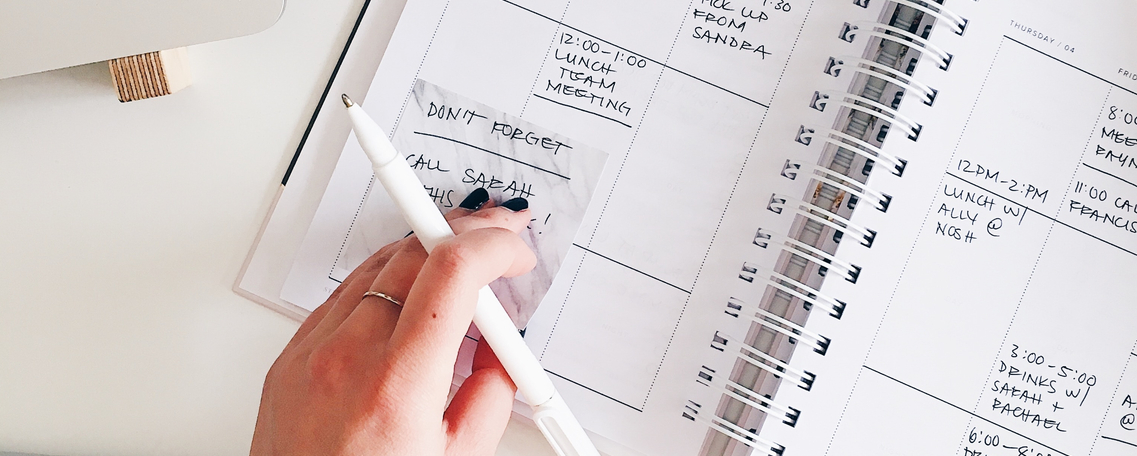 :30
PICK UP
FROM
SANDRA
12:00-1:00
LUNCH
TEAM
MEETING
DON'T FORGET
CALL SARAH
THIS
!
THURSDAY / 04
12PM-2:PM
LUNCH W/
ALLY @
NOSH
3:00-5:00
DRINKS W/
SARAH +
RACHAEL
6:00-8:
11:00 CAL
FRANCIS
8:0
MEE
@